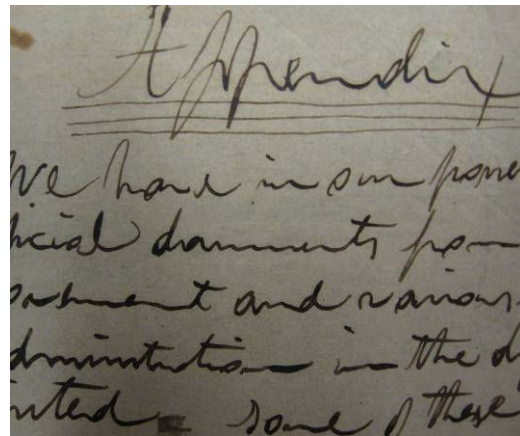 Appendix
We have in our posse
ficial documents from
and various
dministration in the d
nited some of these